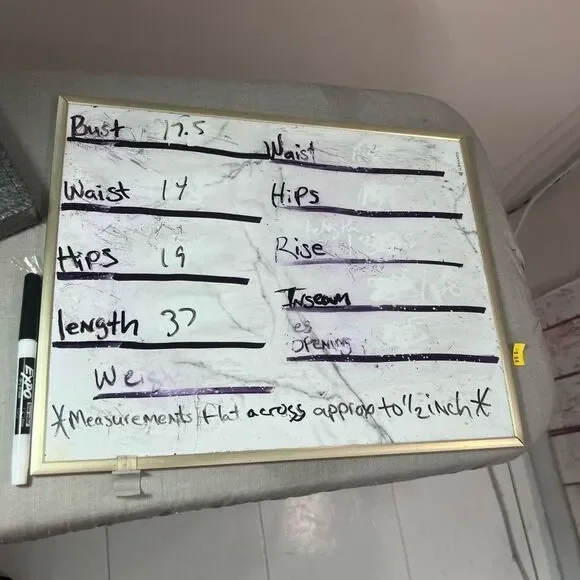 Bust 17.5
Waist 14
Hips 19
length 37
We
Waist
Hips
Rise
Inseam
es
OPENING
*Measurements flat across approx to 1/2 inch*
EXPO